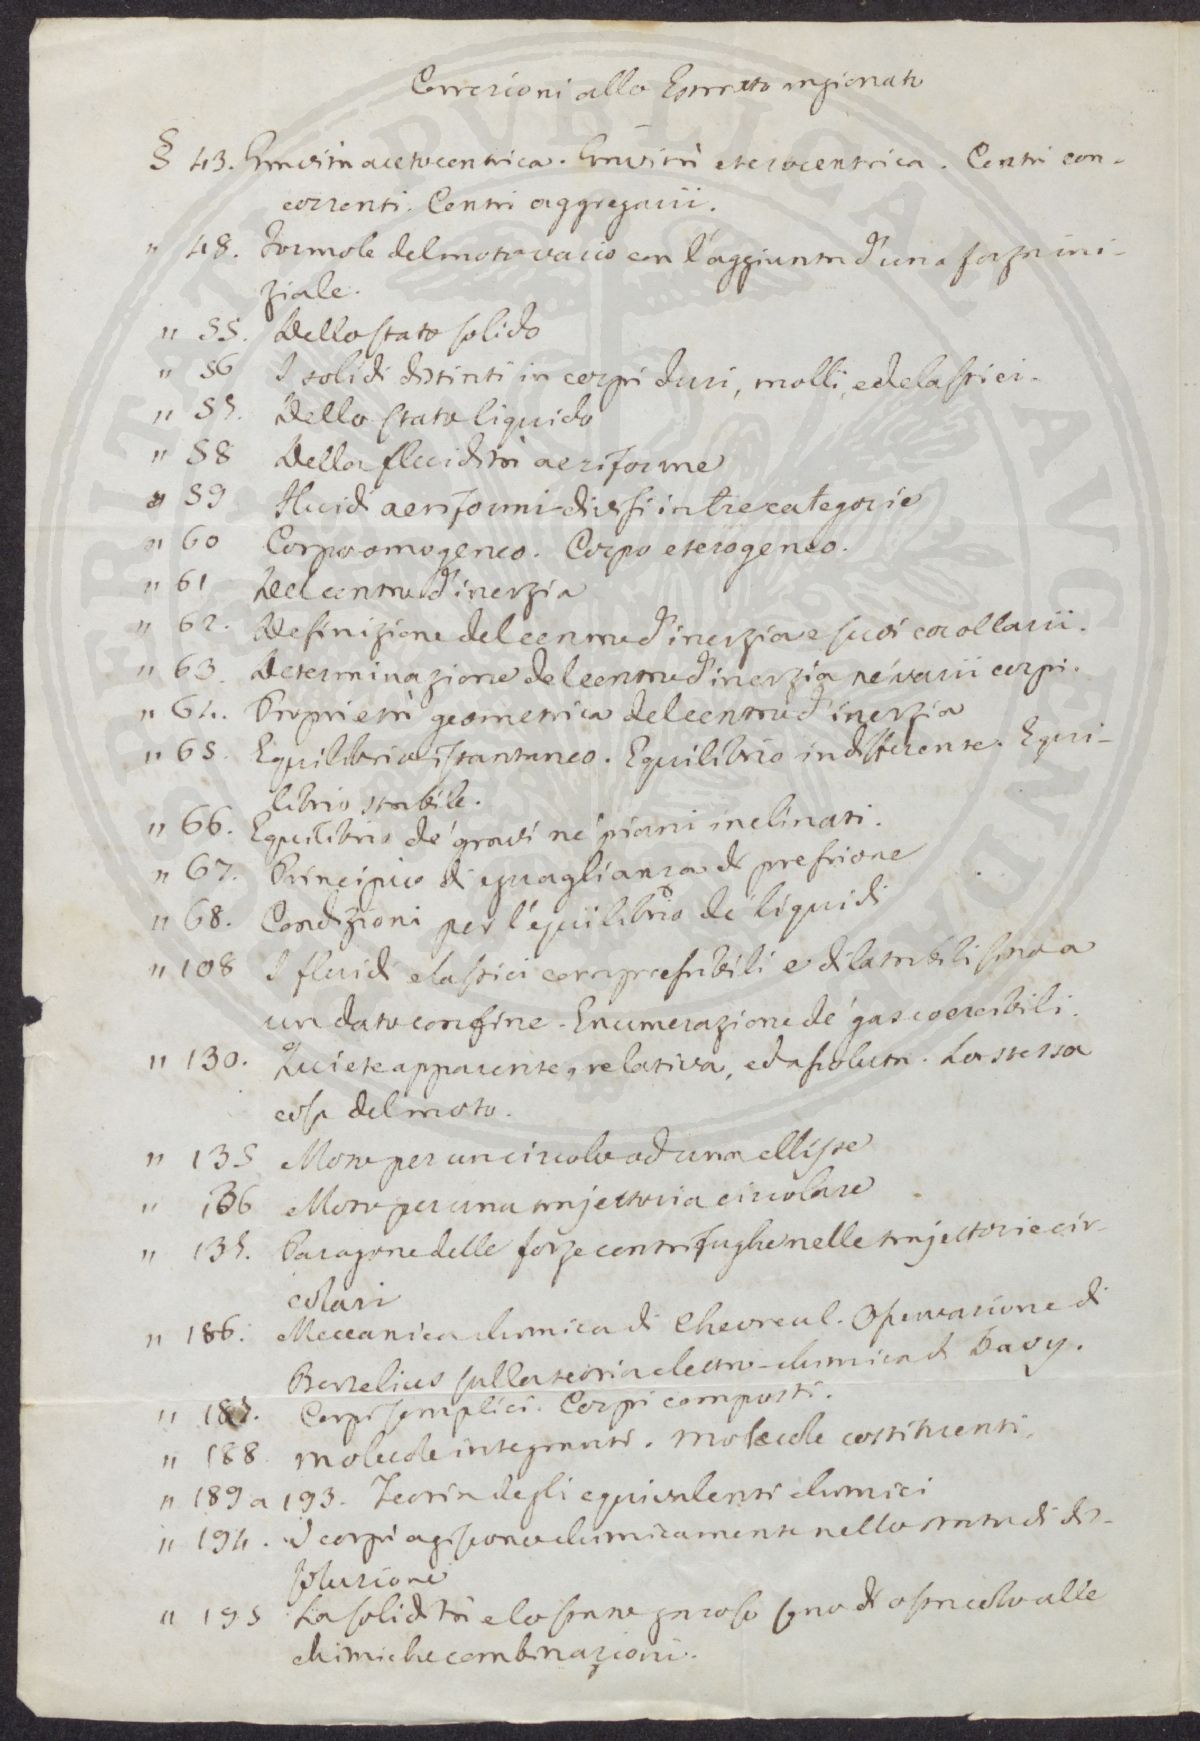 Correzioni allo Estratto ragionato
§ 43. Gravità acetocentrica. Gravità eterocentrica. Centri con-
correnti. Centri aggregarii.
" 48. Formole del moto vario con l'aggiunta d'una forza ini-
ziale.
" 55. Dello stato solido
" 56 I solidi distinti in corpi duri, molli, ed elastici.
" 57. Dello stato liquido
" 58 Della fluidità aeriforme
" 59 Fluidi aeriformi divisi in tre categorie
" 60 Corpo omogeneo. Corpo eterogeneo.
" 61 Del centro d'inerzia
" 62. Definizione del centro d'inerzia e suoi corollarii.
" 63. Determinazione del centro d'inerzia ne' varii corpi.
" 64. Proprietà geometrica del centro d'inerzia
" 65. Equilibrio istantaneo. Equilibrio indifferente. Equi-
librio stabile.
" 66. Equilibrio de' gravi ne' piani inclinati.
" 67. Principio di eguaglianza di pressione
" 68. Condizioni per l'equilibrio de' liquidi
" 108 I fluidi elastici compressibili e dilatabili sino a
un dato confine. Enumerazione de' gas coercibili.
" 130. Quiete apparente, relativa, ed assoluta. La stessa
cosa del moto.
" 135 Moto per un circolo ad una ellisse
" 136 Moto per una trajettoria circolare
" 137. Paragone delle forze centrifughe nelle trajettorie cir-
colari
" 186. Meccanica chimica di Chevreul. Osservazione di
Berzelius sulla teoria electro-chimica di Davy.
" 187. Corpi semplici. Corpi composti.
" 188. Molecole integranti. Molecole costituenti.
" 189 a 193. Teoria degli equivalenti chimici
" 194. I corpi agiscono chimicamente nello stato di dis-
soluzione
" 195 La solidità e lo stato gazoso sono di ostacolo alle
chimiche combinazioni.